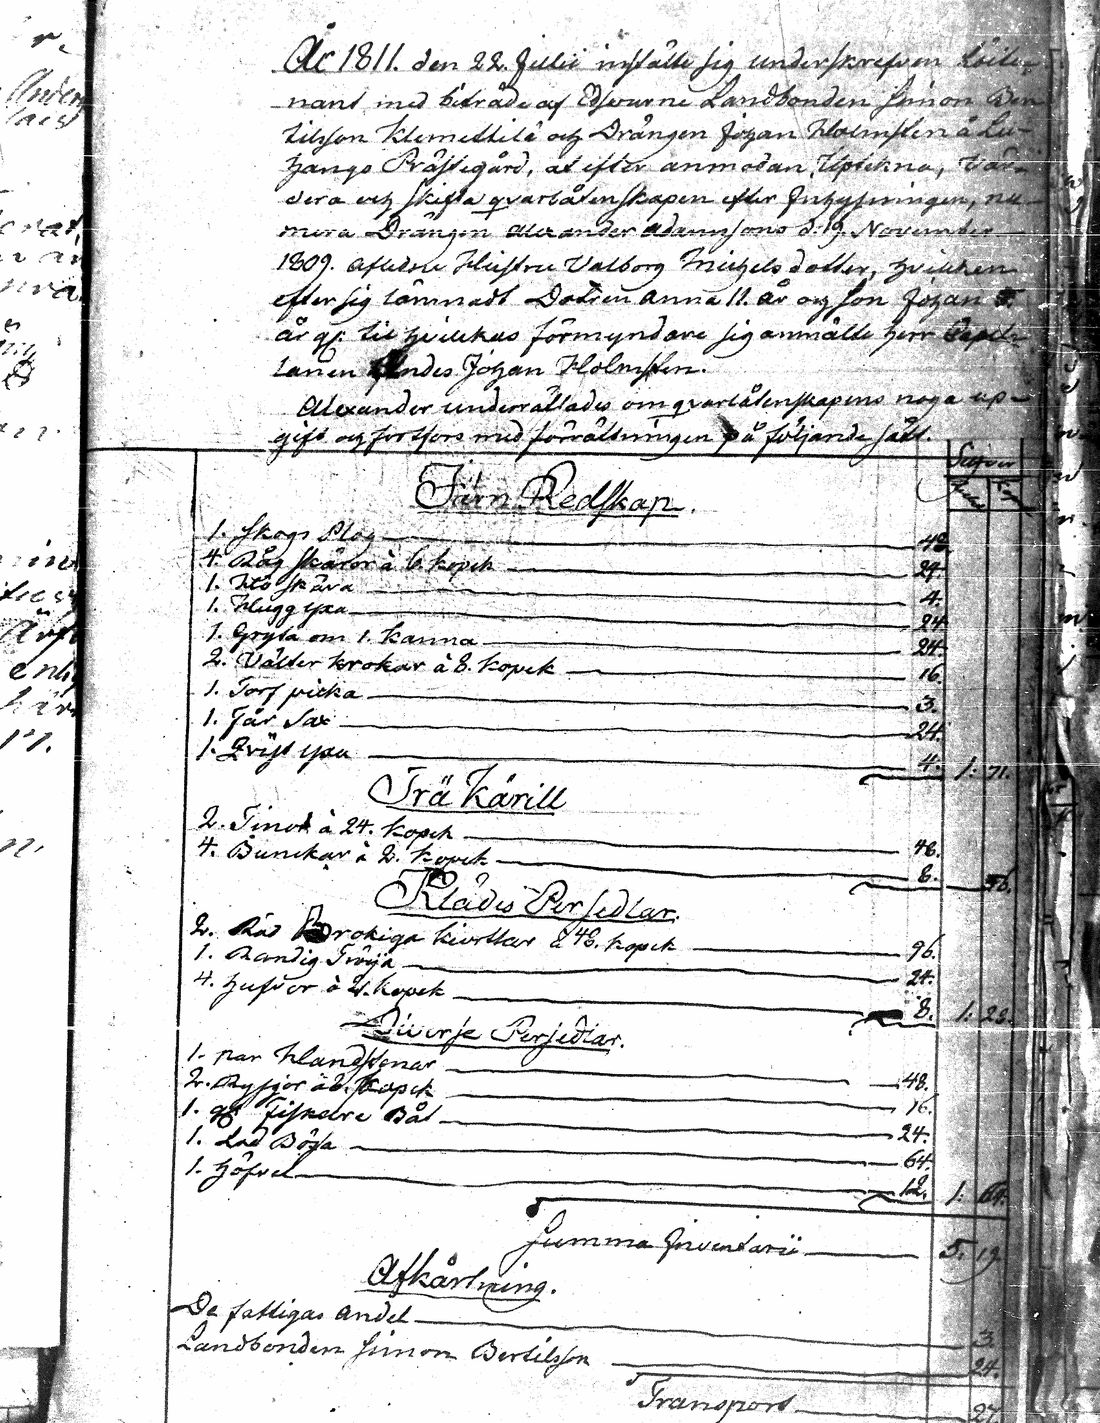 År 1811. den 22. Julii instälte sig underskrefven Löite-
nant med biträde af Edsvurne Landbonden Simon Ber
tilson Klemettilä och Drängen Johan Holmsten å Lu-
hango Prästegård, at efter anmodan, Uptekna, Vär-
dera och skifta qvarlåtenskapen efter Inhysningen, nu
mera Drängen Alexander Adamssons d: 19. November
1809. Afledne Hustru Valborg Michelsdotter, hvilken
efter sig lämnadt Dottren Anna 11. År och Son Johan 5.
år gl: til hvilckas förmyndare sig anmälte herr Capel-
lanen Andes Johan Holmsten.
Alexander underrättades om qvarlåtenskapens noga up-
gift och fortfors med förrättningen på följande sätt.
Silfver
Järn Redskap.
1. Skogs Plog 48
4. Råg skäror à 6. kopek 24.
1. Hö skära 4.
1. Hugg yxa 24
1. Gryta om 1. kanna 24.
2. Välter krokar à 8. kopek 16.
1. Torf picka 3.
1. Får Sax 24.
1. Qvist yxa 4. 1: 71.
Trä Kärill
2. Tinor à 24. kopek 48.
4. Bunckar à 2. kopek 8. 56.
Klädes Persedlar.
2. Rökiga kiortlar à 48. kopek 96.
1. Randig Tröija 24.
4. hufvor à 2. kopek 8. 1: 28.
Diverse Persedlar.
1. par Handstenar 48.
2. Rysjor à 8. kopek 16.
1. gl: Fiskare Båt 24.
1. Lod Bössa 64.
1. höfvel 12. 1: 64.
Summa Inventarii 5. 19.
Afkårtning.
De fattigas andel 3.
Landbonden Simon Bertilsson 24.
Transport 27.